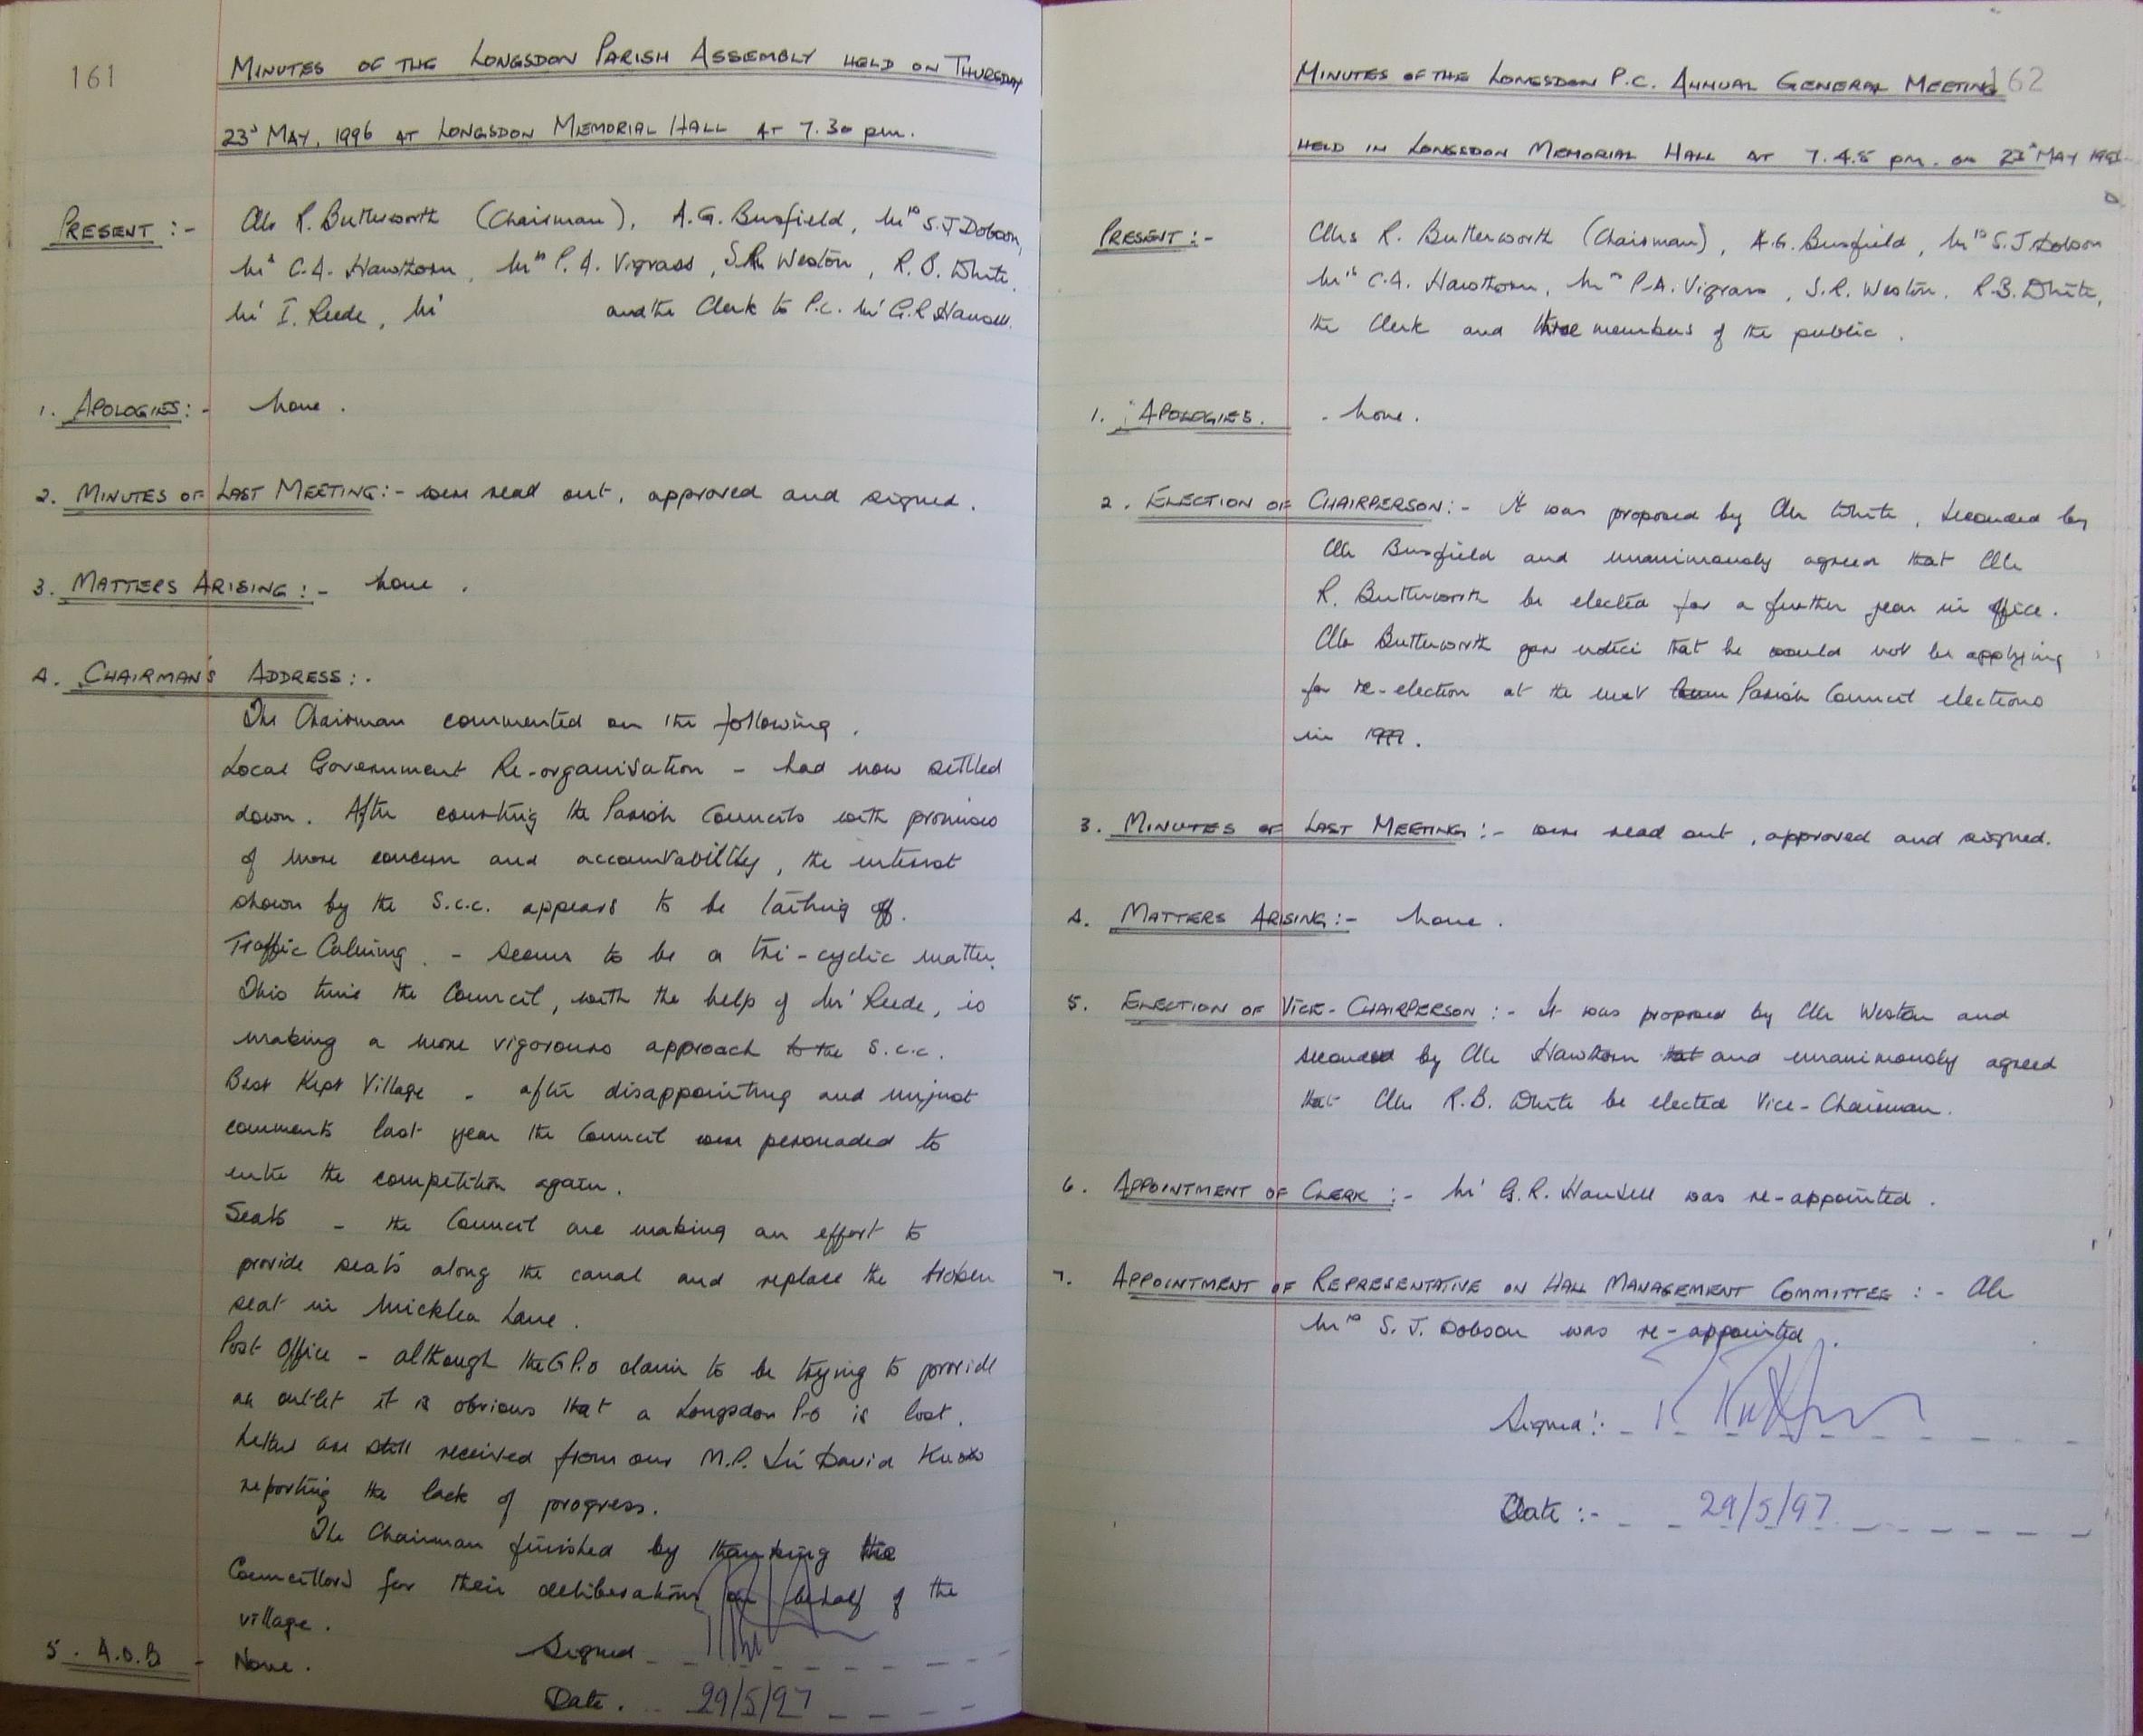 161
MINUTES OF THE LONGSDON PARISH ASSEMBLY HELD ON THURSDAY
23d MAY, 1996 AT LONGSDON MEMORIAL HALL AT 7.30 pm.
PRESENT :- Cllr R. Butterworth (Chairman), A.G. Busfield, Mrs S.J Dobson,
Mrs C.A. Hawthorn, Mrs P.A. Vigrass, S.R. Weston, R.B. White,
Mr I. Reede, Mr and the Clerk to P.C. Mr G.R Hansell.
1. APOLOGIES:- None.
2. MINUTES OF LAST MEETING:- were read out, approved and signed.
3. MATTERS ARISING:- None.
4. CHAIRMAN'S ADDRESS:-
The Chairman commented on the following.
Local Government Re-organisation - had now settled
down. After courting the Parish Councils with promises
of more concern and accountability, the interest
shown by the S.C.C. appears to be tailing off.
Traffic Calming. - seems to be a tri-cyclic matter.
This time the Council, with the help of Mr Reede, is
making a more vigorous approach to the S.C.C.
Best Kept Village - after disappointing and unjust
comments last year the Council were persuaded to
enter the competition again.
Seats - the Council are making an effort to
provide seats along the canal and replace the broken
seat in Micklea Lane.
Post Office - although the G.P.O claim to be trying to provide
an outlet it is obvious that a Longsdon P.O is lost.
Letters are still received from our M.P. Sir David Knox
reporting the lack of progress.
The Chairman finished by thanking the
Councillors for their deliberations on behalf of the
village.
5. A.O.B - None.
Signed
Date. 29/5/97
162
MINUTES OF THE LONGSDON P.C. ANNUAL GENERAL MEETING
HELD IN LONGSDON MEMORIAL HALL AT 7.45 pm. on 23d MAY 1996
PRESENT:- Cllrs R. Butterworth (Chairman), A.G. Busfield, Mrs S.J. Dobson
Mrs C.A. Hawthorn, Mrs P.A. Vigrass, S.R. Weston, R.B. White,
the Clerk and three members of the public.
1. APOLOGIES. - None.
2. ELECTION OF CHAIRPERSON:- It was proposed by Cllr White, seconded by
Cllr Busfield and unanimously agreed that Cllr
R. Butterworth be elected for a further year in office.
Cllr Butterworth gave notice that he would not be applying
for re-election at the next Parish Council elections
in 1999.
3. MINUTES OF LAST MEETING:- were read out, approved and signed.
4. MATTERS ARISING:- None.
5. ELECTION OF VICE-CHAIRPERSON:- It was proposed by Cllr Weston and
seconded by Cllr Hawthorn and unanimously agreed
that Cllr R.B. White be elected Vice-Chairman.
6. APPOINTMENT OF CLERK:- Mr G.R. Hansell was re-appointed.
7. APPOINTMENT OF REPRESENTATIVE ON HALL MANAGEMENT COMMITTEE:- Cllr
Mrs S.J. Dobson was re-appointed.
Signed:-
Date:- 29/5/97